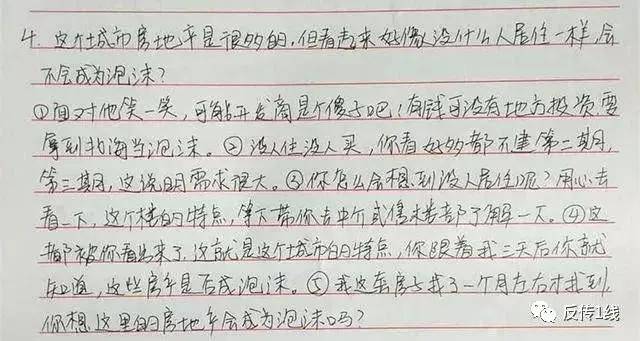 4. 这个城市房地产是很多的,但看起来好像没什么人居住一样会
不会成为泡沫?
①面对他笑一笑,可能开发商是个傻子吧!有钱可没有地方投资需
拿到北海当泡沫。②没人住没人买,你看好多都不建第二期,
第三期,这说明需求很大。③你怎么会想到没人居住呢?用心去
看一下,这个楼的特点,等下带你去中介或售楼部了解一下。④这
都被你看出来了,这就是这个城市的特点,你跟着我三天后你就
知道,这些房产是否成泡沫。⑤我这套房子找了一个月左右才找到
你想这里的房地产会成为泡沫吗?
反传1线